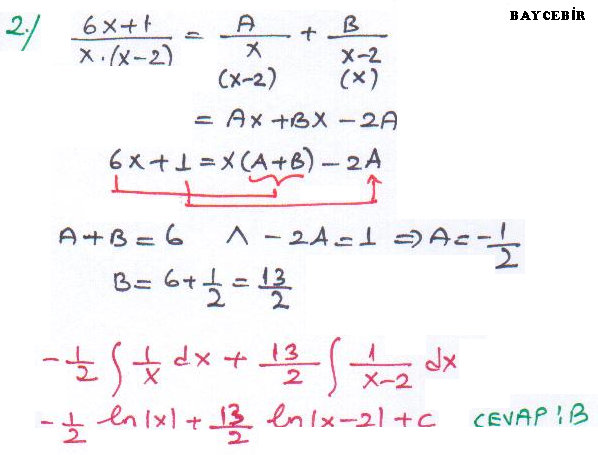 BAYCEBİR
2./ (6x+1)/(x.(x-2)) = A/x + B/(x-2)
(x-2) (x)
= Ax + Bx - 2A
6x + 1 = x(A+B) - 2A
A + B = 6 ∧ - 2A = 1 ⇒ A = -1/2
B = 6 + 1/2 = 13/2
-1/2 ∫ 1/x dx + 13/2 ∫ 1/(x-2) dx
-1/2 ln|x| + 13/2 ln|x-2| + c CEVAP: B